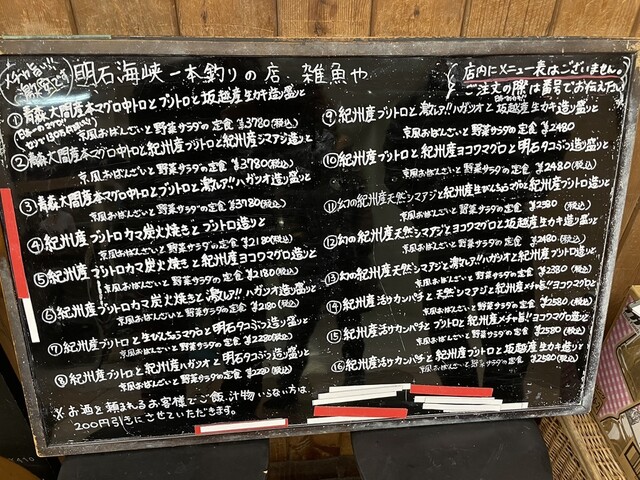 メチャ旨い!!
激安です
明石海峡一本釣りの店 雑魚や
店内にメニュー表はございません。
ご注文の際は番号でお伝え
① 青森大間産本マグロ中トロとブリトロと坂越産生カキ造り盛りと
京風おばんざいと野菜サラダの定食 ¥3780(税込)
② 青森大間産本マグロ中トロと紀州産ブリトロと紀州産シマアジ造りと
京風おばんざいと野菜サラダの定食 ¥3780(税込)
③ 青森大間産本マグロ中トロとブリトロと激レア!!ハガツオ造り盛りと
京風おばんざいと野菜サラダの定食 ¥3780(税込)
④ 紀州産ブリトロカマ炭火焼きとブリトロ造りと
京風おばんざいと野菜サラダの定食 ¥2180(税込)
⑤ 紀州産ブリトロカマ炭火焼きと紀州産ヨコワマグロ造りと
京風おばんざいと野菜サラダの定食 ¥2180(税込)
⑥ 紀州産ブリトロカマ炭火焼きと激レア!!ハガツオ造り盛りと
京風おばんざいと野菜サラダの定食 ¥2180(税込)
⑦ 紀州産ブリトロと生びんちょうマグロと明石タコぶつ造り盛りと
京風おばんざいと野菜サラダの定食 ¥2280(税込)
⑧ 紀州産ブリトロと紀州産ハガツオと明石タコぶつ造り盛りと
京風おばんざいと野菜サラダの定食 ¥2280(税込)
※お酒を頼まれるお客様でご飯、汁物いらない方は、
200円引きにさせていただきます。
⑨ 紀州産ブリトロと激レア!!ハガツオと坂越産生カキ造り盛りと
京風おばんざいと野菜サラダの定食 ¥2480(税込)
⑩ 紀州産ブリトロと紀州産ヨコワマグロと明石タコぶつ造り盛りと
京風おばんざいと野菜サラダの定食 ¥2480(税込)
⑪ 幻の紀州産天然シマアジと紀州産生びんちょうマグロと紀州産ブリトロ造りと
京風おばんざいと野菜サラダの定食 ¥2380(税込)
⑫ 幻の紀州産天然シマアジとヨコワマグロと坂越産生カキ造り盛りと
京風おばんざいと野菜サラダの定食 ¥2480(税込)
⑬ 幻の紀州産天然シマアジと激レア!!ハガツオと紀州産ブリトロ造り盛りと
京風おばんざいと野菜サラダの定食 ¥2380(税込)
⑭ 紀州産活〆カンパチと天然シマアジと紀州産メチャ旨!!ヨコワマグロと
京風おばんざいと野菜サラダの定食 ¥2580(税込)
⑮ 紀州産活〆カンパチとブリトロと紀州産メチャ旨!!ヨコワマグロ造りと
京風おばんざいと野菜サラダの定食 ¥2580(税込)
⑯ 紀州産活〆カンパチと紀州産ブリトロと坂越産生カキ造り盛りと
京風おばんざいと野菜サラダの定食 ¥2580(税込)